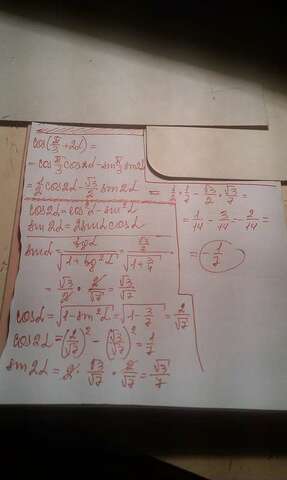 cos(π/3 + 2α) =
= cos π/3 cos2α - sin π/3 sin2α
= 1/2 cos2α - √3/2 sin2α = 1/2 · 1/7 - √3/2 · √3/7 =
= 1/14 - 3/14 = - 2/14 =
= - 1/7
cos2α = cos²α - sin²α
sin2α = 2sinα cosα
sinα = tgα / √(1 + tg²α) = (√3/2) / √(1 + 3/4)
= √3/2 · 2/√7 = √3/√7
cosα = √(1 - sin²α) = √(1 - 3/7) = 2/√7
cos2α = (2/√7)² - (√3/√7)² = 1/7
sin2α = 2 · √3/√7 · 2/√7 = √3/7